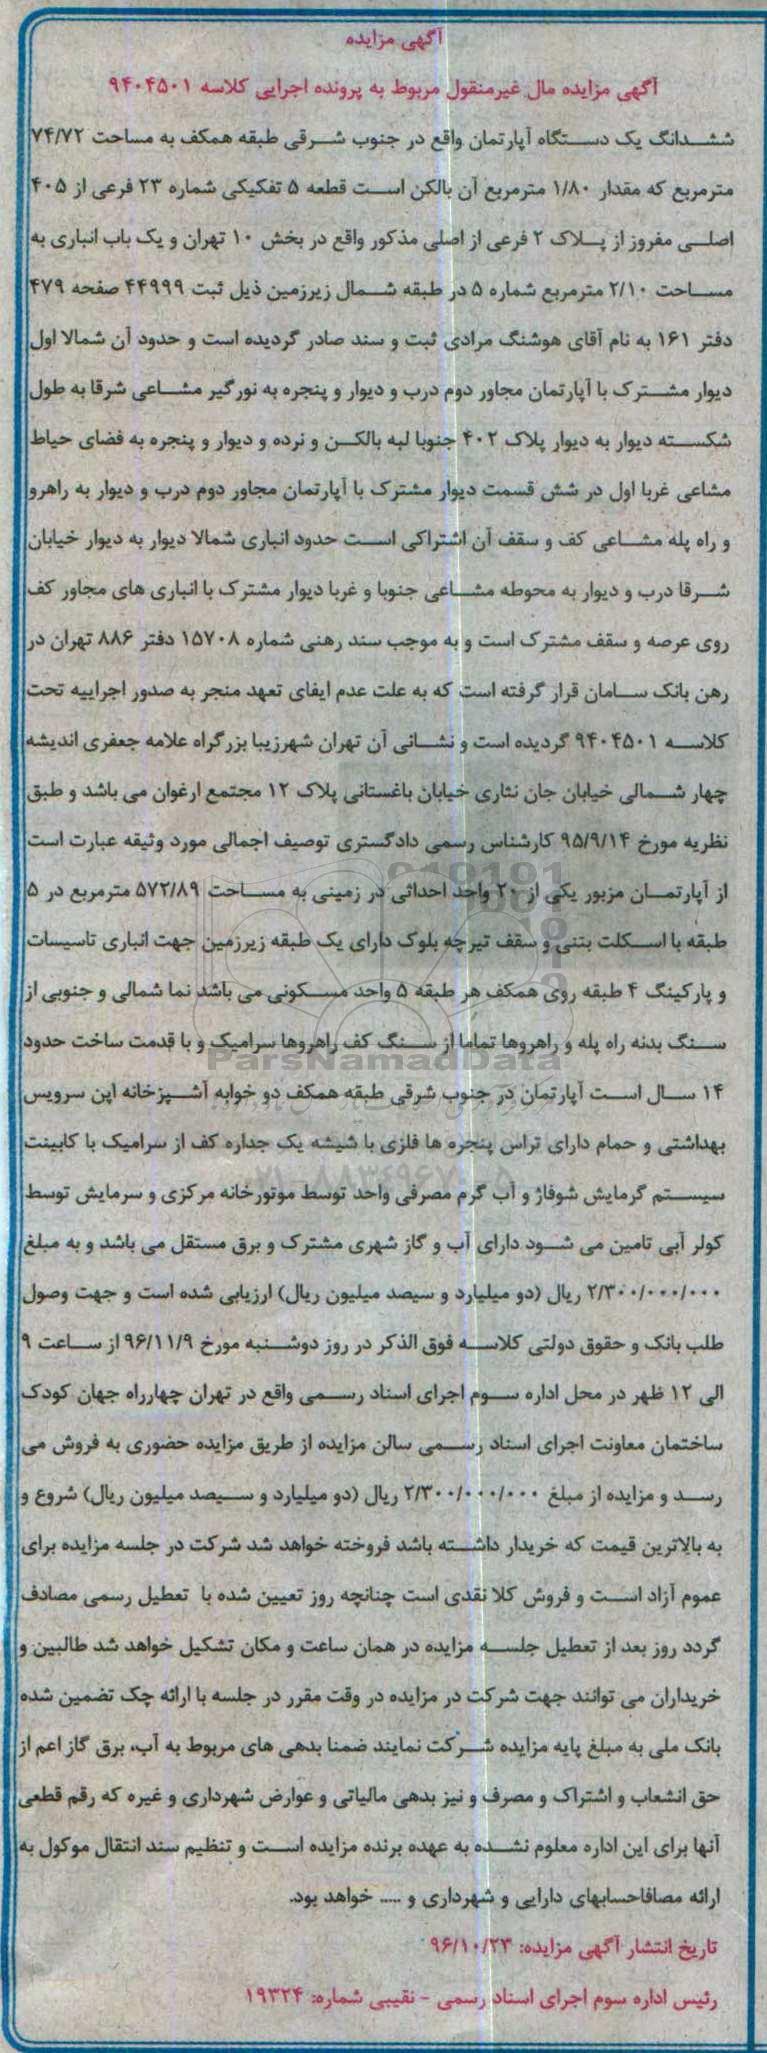 آگهی مزایده
آگهی مزایده مال غیرمنقول مربوط به پرونده اجرایی کلاسه ۹۴۰۴۵۰۱
ششدانگ یک دستگاه آپارتمان واقع در جنوب شرقی طبقه همکف به مساحت ۷۴/۷۲
مترمربع که مقدار ۱/۸۰ مترمربع آن بالکن است قطعه ۵ تفکیکی شماره ۲۳ فرعی از ۴۰۵
اصلی مفروز از پلاک ۲ فرعی از اصلی مذکور واقع در بخش ۱۰ تهران و یک باب انباری به
مساحت ۲/۱۰ مترمربع شماره ۵ در طبقه شمال زیرزمین ذیل ثبت ۴۴۹۹۹ صفحه ۴۷۹
دفتر ۱۶۱ به نام آقای هوشنگ مرادی ثبت و سند صادر گردیده است و حدود آن شمالا اول
دیوار مشترک با آپارتمان مجاور دوم درب و دیوار و پنجره به نورگیر مشاعی شرقا به طول
شکسته دیوار به دیوار پلاک ۴۰۲ جنوبا لبه بالکن و نرده و دیوار و پنجره به فضای حیاط
مشاعی غربا اول در شش قسمت دیوار مشترک با آپارتمان مجاور دوم درب و دیوار به راهرو
و راه پله مشاعی کف و سقف آن اشتراکی است حدود انباری شمالا دیوار به دیوار خیابان
شرقا درب و دیوار به محوطه مشاعی جنوبا و غربا دیوار مشترک با انباری های مجاور کف
روی عرصه و سقف مشترک است و به موجب سند رهنی شماره ۱۵۷۰۸ دفتر ۸۸۶ تهران در
رهن بانک سامان قرار گرفته است که به علت عدم ایفای تعهد منجر به صدور اجراییه تحت
کلاسه ۹۴۰۴۵۰۱ گردیده است و نشانی آن تهران شهرزیبا بزرگراه علامه جعفری اندیشه
چهار شمالی خیابان جان نثاری خیابان باغستانی پلاک ۱۲ مجتمع ارغوان می باشد و طبق
نظریه مورخ ۹۵/۹/۱۴ کارشناس رسمی دادگستری توصیف اجمالی مورد وثیقه عبارت است
از آپارتمان مزبور یکی از ۲۰ واحد احداثی در زمینی به مساحت ۵۷۲/۸۹ مترمربع در ۵
طبقه با اسکلت بتنی و سقف تیرچه بلوک دارای یک طبقه زیرزمین جهت انباری تاسیسات
و پارکینگ ۴ طبقه روی همکف هر طبقه ۵ واحد مسکونی می باشد نما شمالی و جنوبی از
سنگ بدنه راه پله و راهروها تماما از سنگ کف راهروها سرامیک و با قدمت ساخت حدود
ParsNamadData
۱۴ سال است آپارتمان در جنوب شرقی طبقه همکف دو خوابه آشپزخانه اپن سرویس
بهداشتی و حمام دارای تراس پنجره ها فلزی با شیشه یک جداره کف از سرامیک با کابینت
۰۲۱-۸۸۳۴۹۶۷۰-۵
سیستم گرمایش شوفاژ و آب گرم مصرفی واحد توسط موتورخانه مرکزی و سرمایش توسط
کولر آبی تامین می شود دارای آب و گاز شهری مشترک و برق مستقل می باشد و به مبلغ
۲/۳۰۰/۰۰۰/۰۰۰ ریال (دو میلیارد و سیصد میلیون ریال) ارزیابی شده است و جهت وصول
طلب بانک و حقوق دولتی کلاسه فوق الذکر در روز دوشنبه مورخ ۹۶/۱۱/۹ از ساعت ۹
الی ۱۲ ظهر در محل اداره سوم اجرای اسناد رسمی واقع در تهران چهارراه جهان کودک
ساختمان معاونت اجرای اسناد رسمی سالن مزایده از طریق مزایده حضوری به فروش می
رسد و مزایده از مبلغ ۲/۳۰۰/۰۰۰/۰۰۰ ریال (دو میلیارد و سیصد میلیون ریال) شروع و
به بالاترین قیمت که خریدار داشته باشد فروخته خواهد شد شرکت در جلسه مزایده برای
عموم آزاد است و فروش کلا نقدی است چنانچه روز تعیین شده با تعطیل رسمی مصادف
گردد روز بعد از تعطیل جلسه مزایده در همان ساعت و مکان تشکیل خواهد شد طالبین و
خریداران می توانند جهت شرکت در مزایده در وقت مقرر در جلسه با ارائه چک تضمین شده
بانک ملی به مبلغ پایه مزایده شرکت نمایند ضمنا بدهی های مربوط به آب، برق گاز اعم از
حق انشعاب و اشتراک و مصرف و نیز بدهی مالیاتی و عوارض شهرداری و غیره که رقم قطعی
آنها برای این اداره معلوم نشده به عهده برنده مزایده است و تنظیم سند انتقال موکول به
ارائه مصافاحسابهای دارایی و شهرداری و ..... خواهد بود.
تاریخ انتشار آگهی مزایده: ۹۶/۱۰/۲۳
رئیس اداره سوم اجرای اسناد رسمی - نقیبی شماره: ۱۹۳۲۴